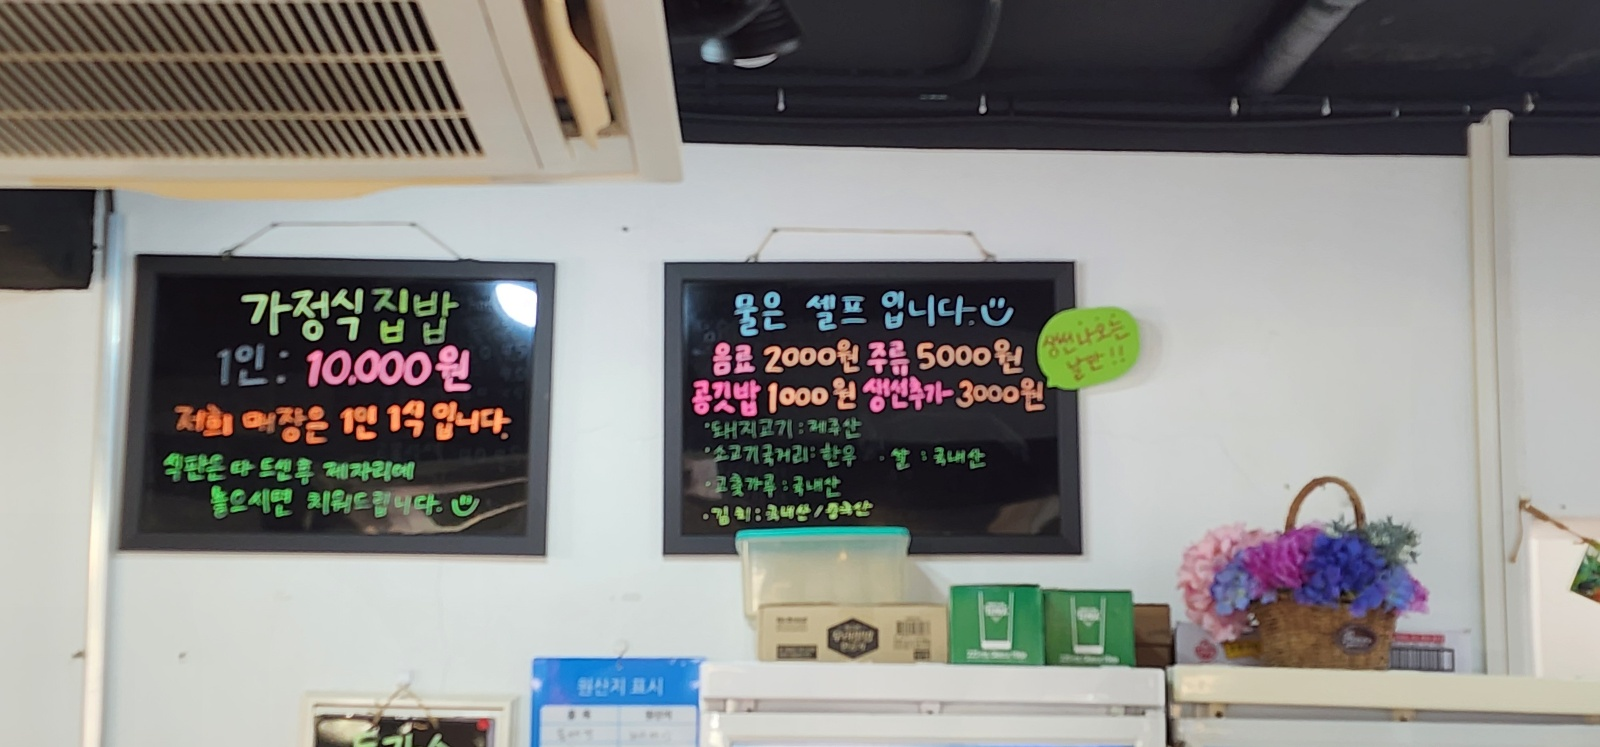 가정식 집밥
1인 : 10,000원
저희 매장은 1인 1식 입니다.
식판은 다 드신 후 제자리에
놓으시면 치워드립니다.
물은 셀프 입니다.
음료 2000원 주류 5000원
공깃밥 1000원 생선추가 3000원
생선 나오는
날만!!
·돼지고기 : 제주산
·소고기국거리 : 한우 · 쌀 : 국내산
·고춧가루 : 국내산
·김치 : 국내산/중국산
원산지 표시